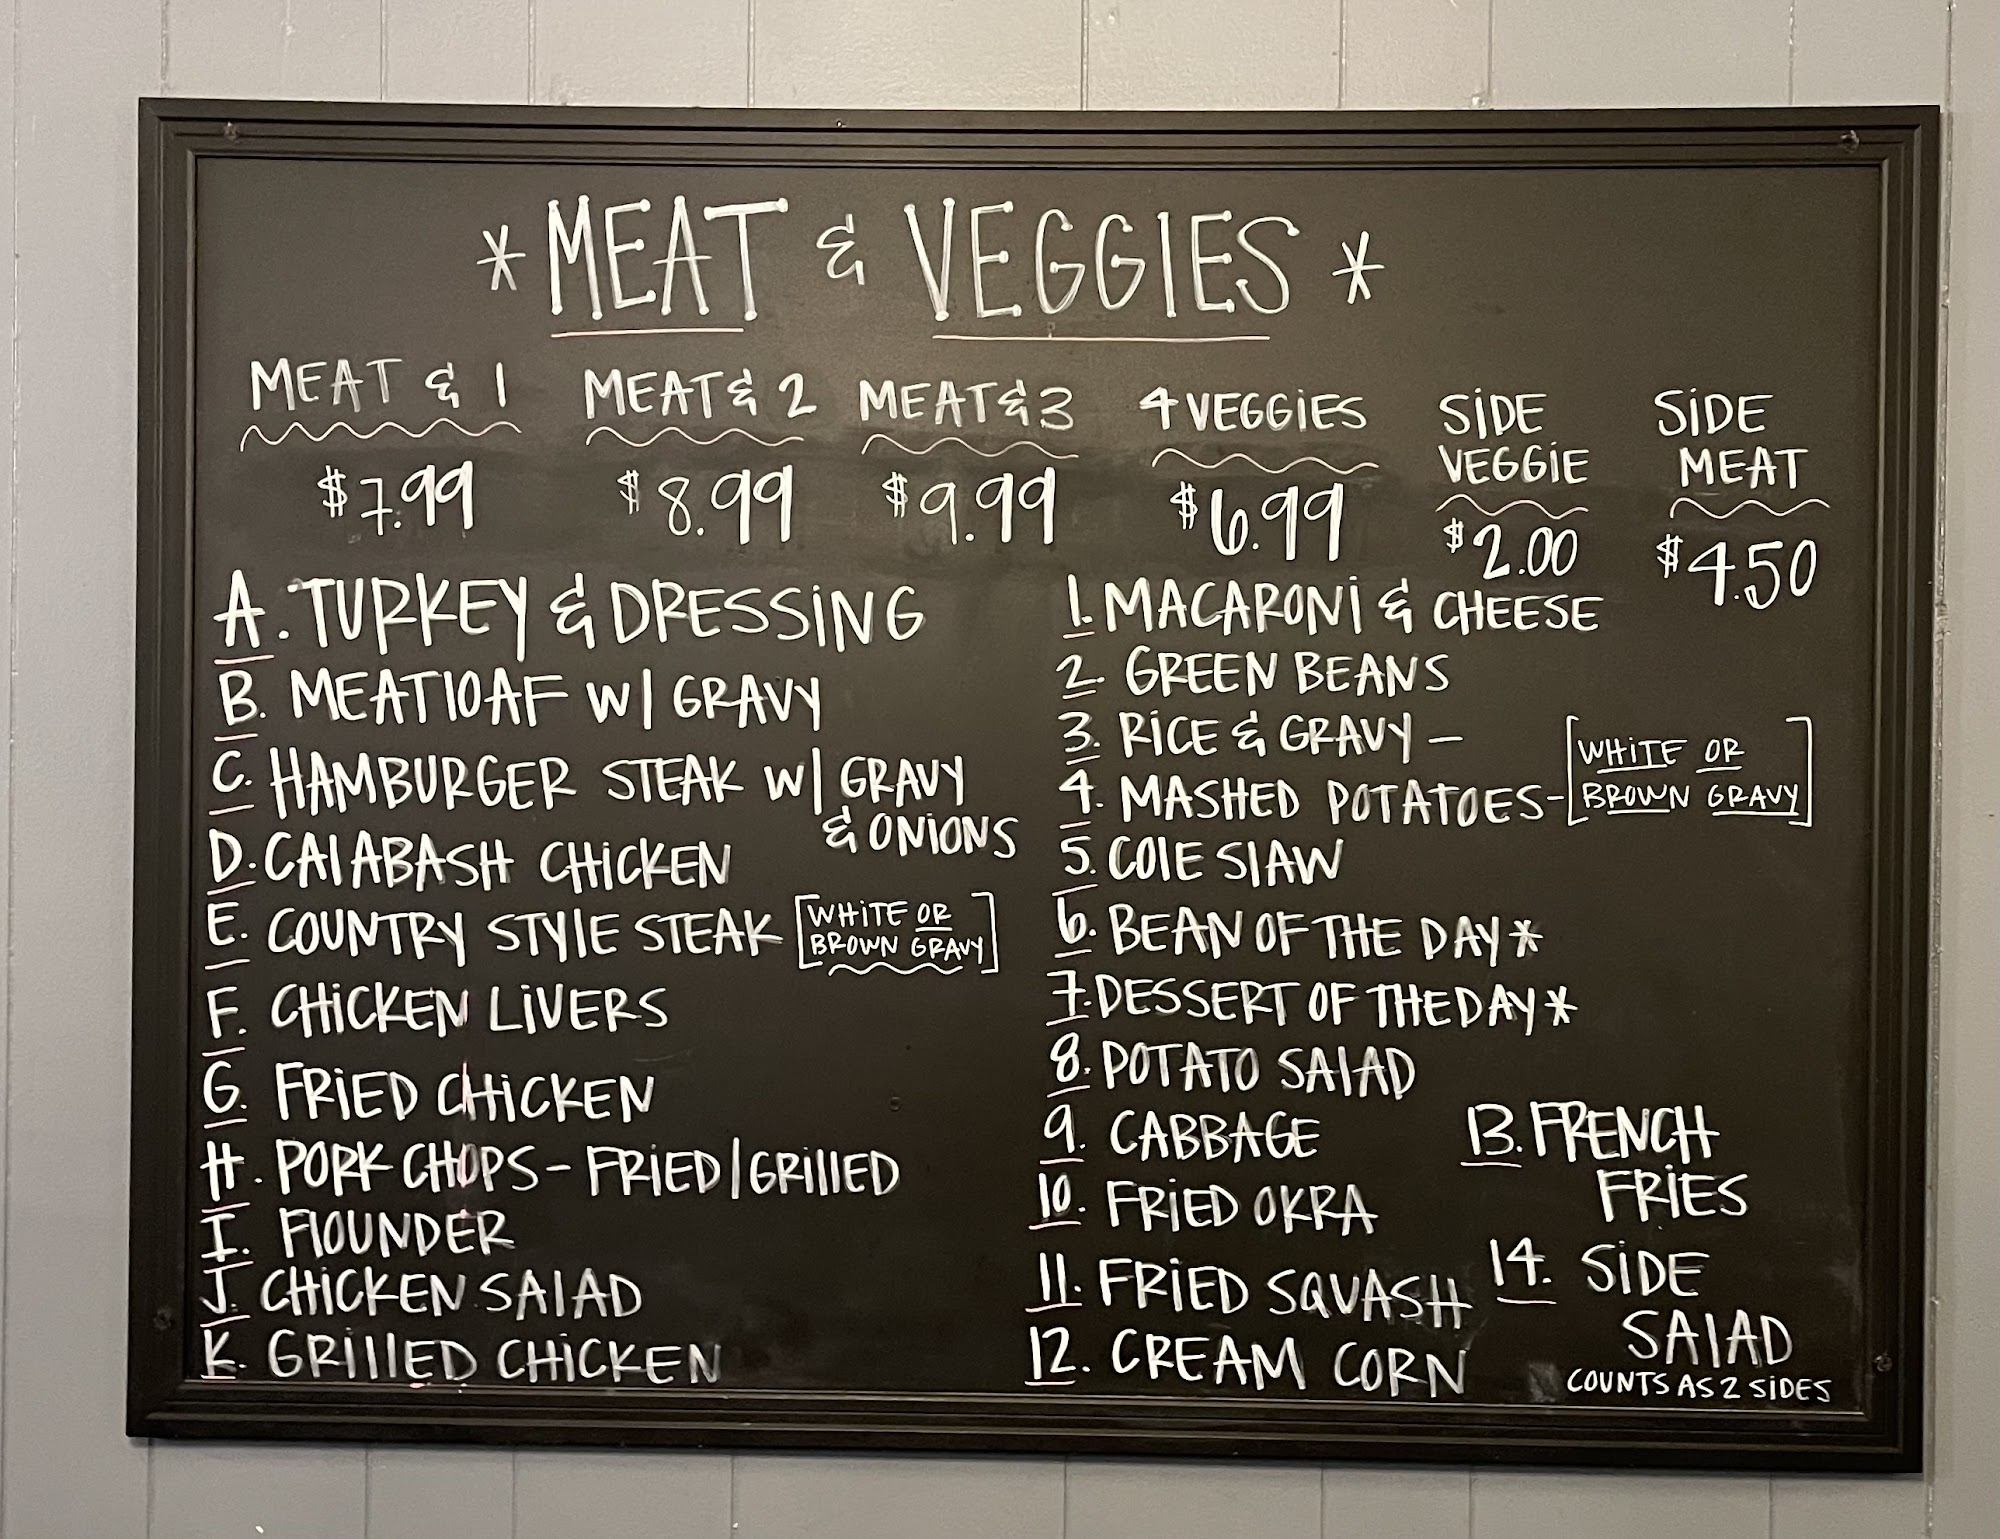 * MEAT & VEGGIES *
MEAT & 1
$7.99
MEAT & 2
$8.99
MEAT & 3
$9.99
4 VEGGIES
$6.99
SIDE
VEGGIE
$2.00
SIDE
MEAT
$4.50
A. TURKEY & DRESSING
B. MEATLOAF W/ GRAVY
C. HAMBURGER STEAK W/ GRAVY
& ONIONS
D. CALABASH CHICKEN
E. COUNTRY STYLE STEAK [WHITE OR
BROWN GRAVY]
F. CHICKEN LIVERS
G. FRIED CHICKEN
H. PORK CHOPS - FRIED/GRILLED
I. FLOUNDER
J. CHICKEN SALAD
K. GRILLED CHICKEN
1. MACARONI & CHEESE
2. GREEN BEANS
3. RICE & GRAVY -
4. MASHED POTATOES -
[WHITE OR
BROWN GRAVY]
5. COLE SLAW
6. BEAN OF THE DAY *
7. DESSERT OF THE DAY *
8. POTATO SALAD
9. CABBAGE
10. FRIED OKRA
11. FRIED SQUASH
12. CREAM CORN
13. FRENCH
FRIES
14. SIDE
SALAD
COUNTS AS 2 SIDES